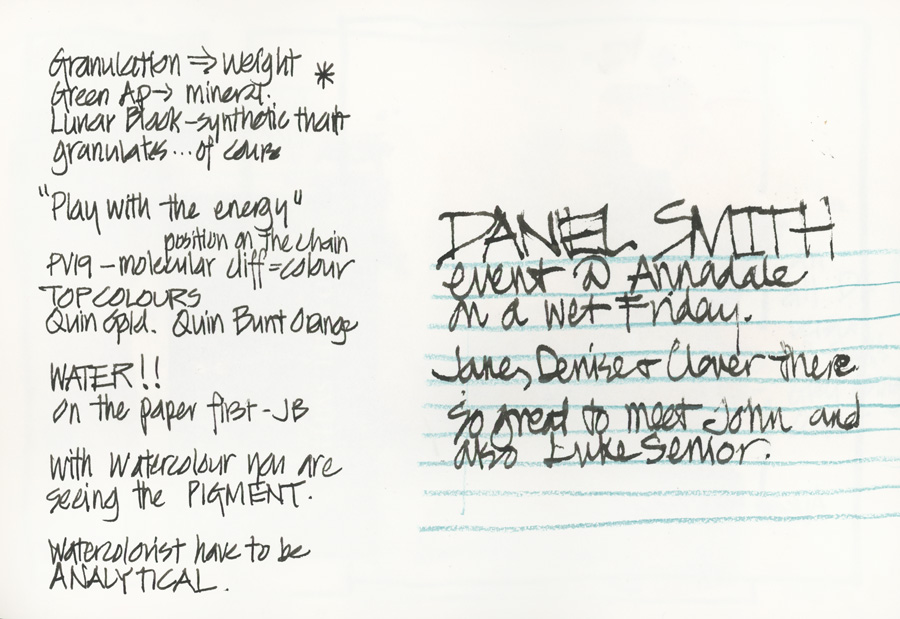 Granulation ⇒ weight *
Green Ap → mineral.
Lunar Black - synthetic that
granulates... of course
"Play with the energy"
position on the chain
PV19 - molecular diff = colour
TOP COLOURS
Quin Gold. Quin Burnt Orange
WATER!!
on the paper first - JB
with watercolour you are
seeing the PIGMENT.
Watercolorist have to be
ANALYTICAL.
DANIEL SMITH
event @ Annadale
on a wet Friday.
Jane, Denise + Clover there
So great to meet John and
also Luke Senior.